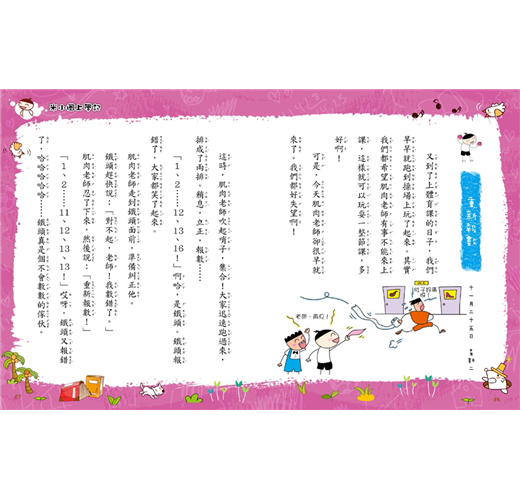 米小圈上學記
重新報數
十一月二十五日 星期二
又到了上體育課的日子,我們
早早就跑到操場上玩了起來。其實
我們都希望肌肉老師有事不能來上
課,這樣就可以玩耍一整節課,多
好啊!
可是,今天肌肉老師卻很早就
來了。我們都好失望啊!
這時,肌肉老師吹起哨子,集合!大家迅速跑過來,
排成了兩排。稍息,立正,報數……
「1、2……12、13、16!」啊哈,是鐵頭。鐵頭報
錯了,大家都笑了起來。
肌肉老師走到鐵頭面前,準備糾正他。
鐵頭趕快說:「對不起,老師!我數錯了。」
肌肉老師忍了下來,然後說:「重新報數!」
「1、2……11、12、13、13!」哎呀,鐵頭又報錯
了。哈哈哈哈……鐵頭真是個不會數數的傢伙。